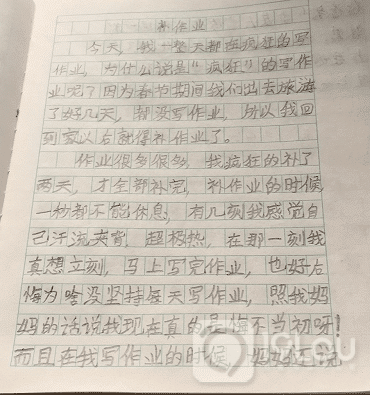 补作业
今天,我一整天都在疯狂的写
作业,为什么说是“疯狂”的写作
业呢?因为春节期间我们出去旅游
了好几天,都没写作业,所以我回
到家以后就得补作业了。
作业很多很多,我疯狂的补了
两天,才全部补完,补作业的时候
一秒都不能休息,有几刻我感觉自
己汗流夹背,超极热,在那一刻我
真想立刻,马上写完作业,也好后
悔为啥没坚持每天写作业,照我妈
妈的话说我现在真的是悔不当初呀
而且在我写作业的时候,妈妈还说